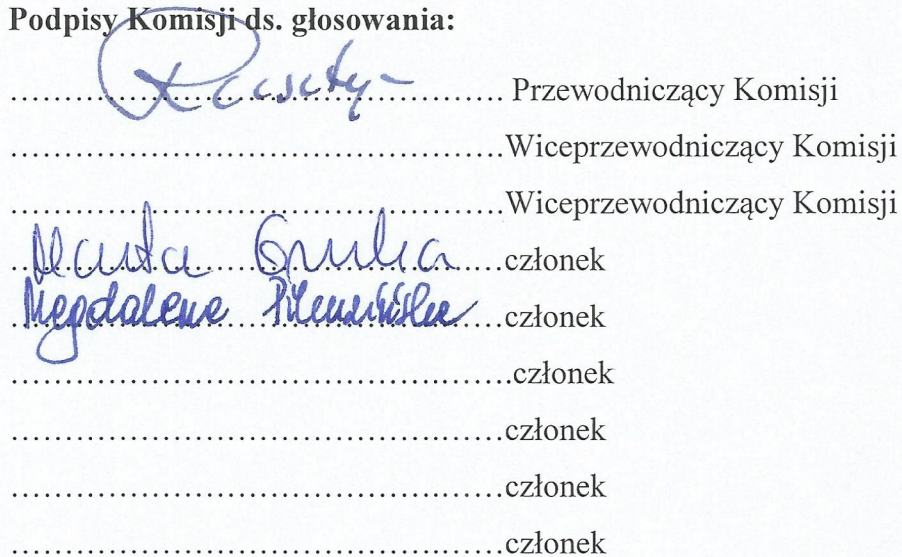 Podpisy Komisji ds. głosowania:
…………………………………………… Przewodniczący Komisji
……………………………………………Wiceprzewodniczący Komisji
…………………………………………… Wiceprzewodniczący Komisji
Marta ……………………członek
Magdalena ……………………członek
……………………………………………członek
……………………………………………członek
……………………………………………członek
……………………………………………członek